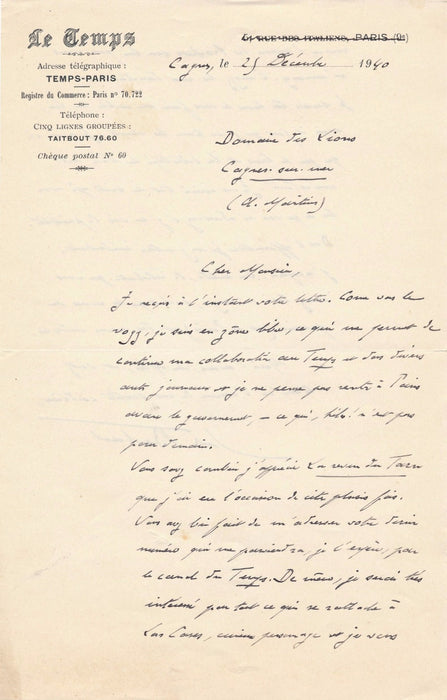 Le Temps
Adresse télégraphique :
TEMPS-PARIS
Registre du Commerce : Paris nº 70.722
Téléphone :
CINQ LIGNES GROUPÉES :
TAITBOUT 76.60
Chèque postal Nº 60
RUE DES ITALIENS, PARIS (9e)
Cagnes, le 25 Décembre 1940
Domaine des Lions
Cagnes-sur-mer
(A. Martins)
Cher Monsieur,
Je reçois à l'instant votre lettre. Comme vous le
voyez, je suis en zône libre, ce qui me permet de
continuer ma collaboration au Temps et à divers
autres journaux et je ne pense pas rentrer à Paris
avant le gouvernement, — ce qui, hélas! n'est pas
pour demain.
Vous savez combien j'apprécie La revue du Tarn
que j'ai eu l'occasion de citer plusieurs fois.
Vous avez bien fait de m'adresser votre dernier
numéro qui me parviendra, je l'espère, par
le canal du Temps. De même, je serais très
intéressé par tout ce qui se rattache à
Las Cases, curieux personnage et je vous